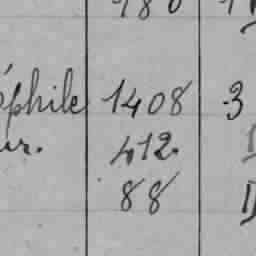 éphile 1408 3
ur. 412.
88 D